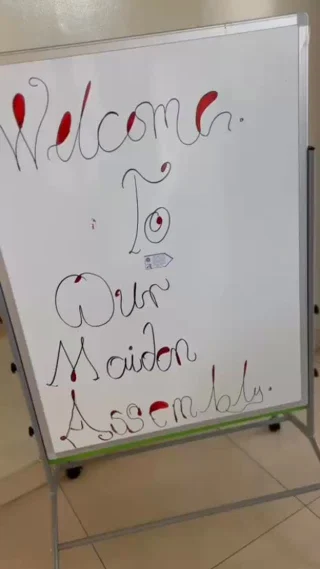 Welcome.
To
Our
Maiden
Assembly.